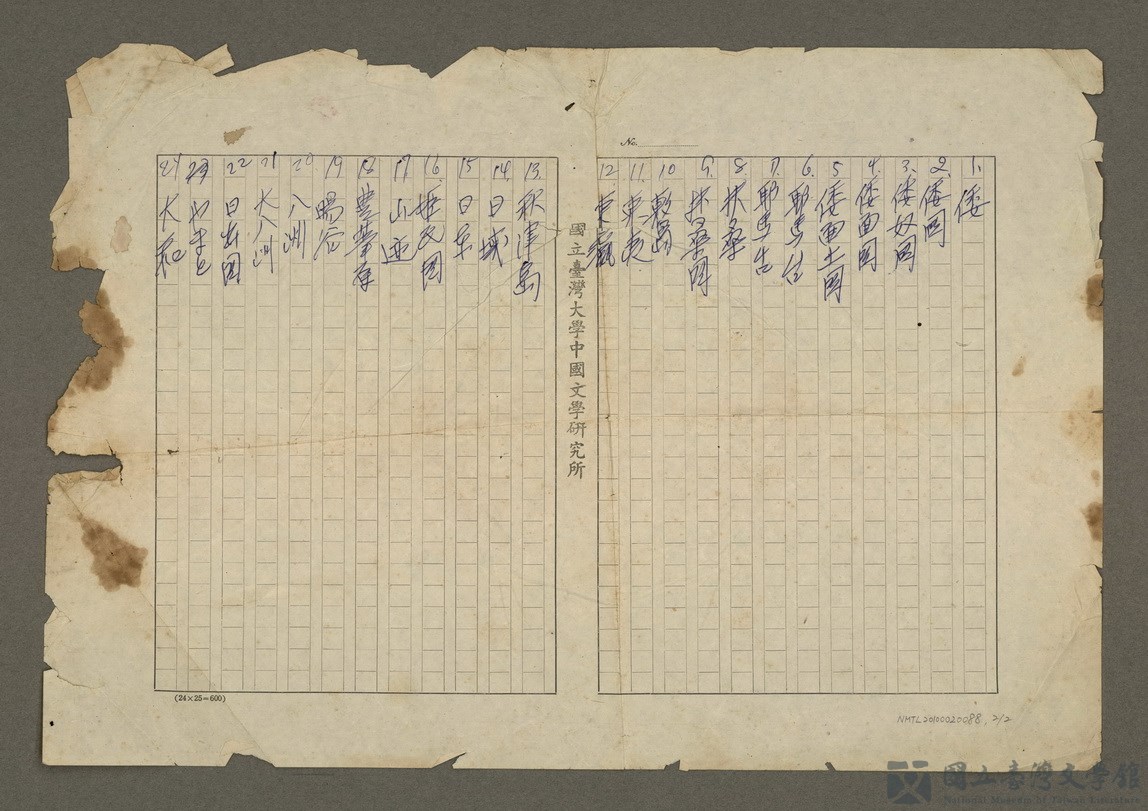 No.
1. 倭
2. 倭国
3. 倭奴国
4. 倭面国
5 倭面土国
6. 耶馬台
7. 耶馬臺
8. 扶桑
9. 扶桑国
10 敷島
11. 東夷
12 東瀛
國立臺灣大學中國文學研究所
13. 秋津島
14. 日域
15 日東
16. 姫氏国
17. 山迹
18 豊葦原
19 暘谷
20 八洲
21 大八洲
22 日出国
23 やまと
24 大和
(24×25=600)
NMTL20100020088, 2/2
國立臺灣文學館
National Museum of Taiwan Literature